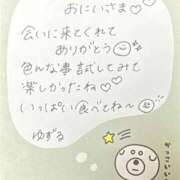 おにいさま♡
会いに来てくれて
ありがとう
色んな事試してみて
楽しかったね♡
いっぱい食べてね〜
ゆずる